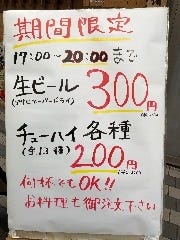 期間限定
17:00~20:00まで
生ビール 300円
(アサヒスーパードライ)
チューハイ各種
(全13種) 200円
何杯でもOK!!
お料理も御注文下さい